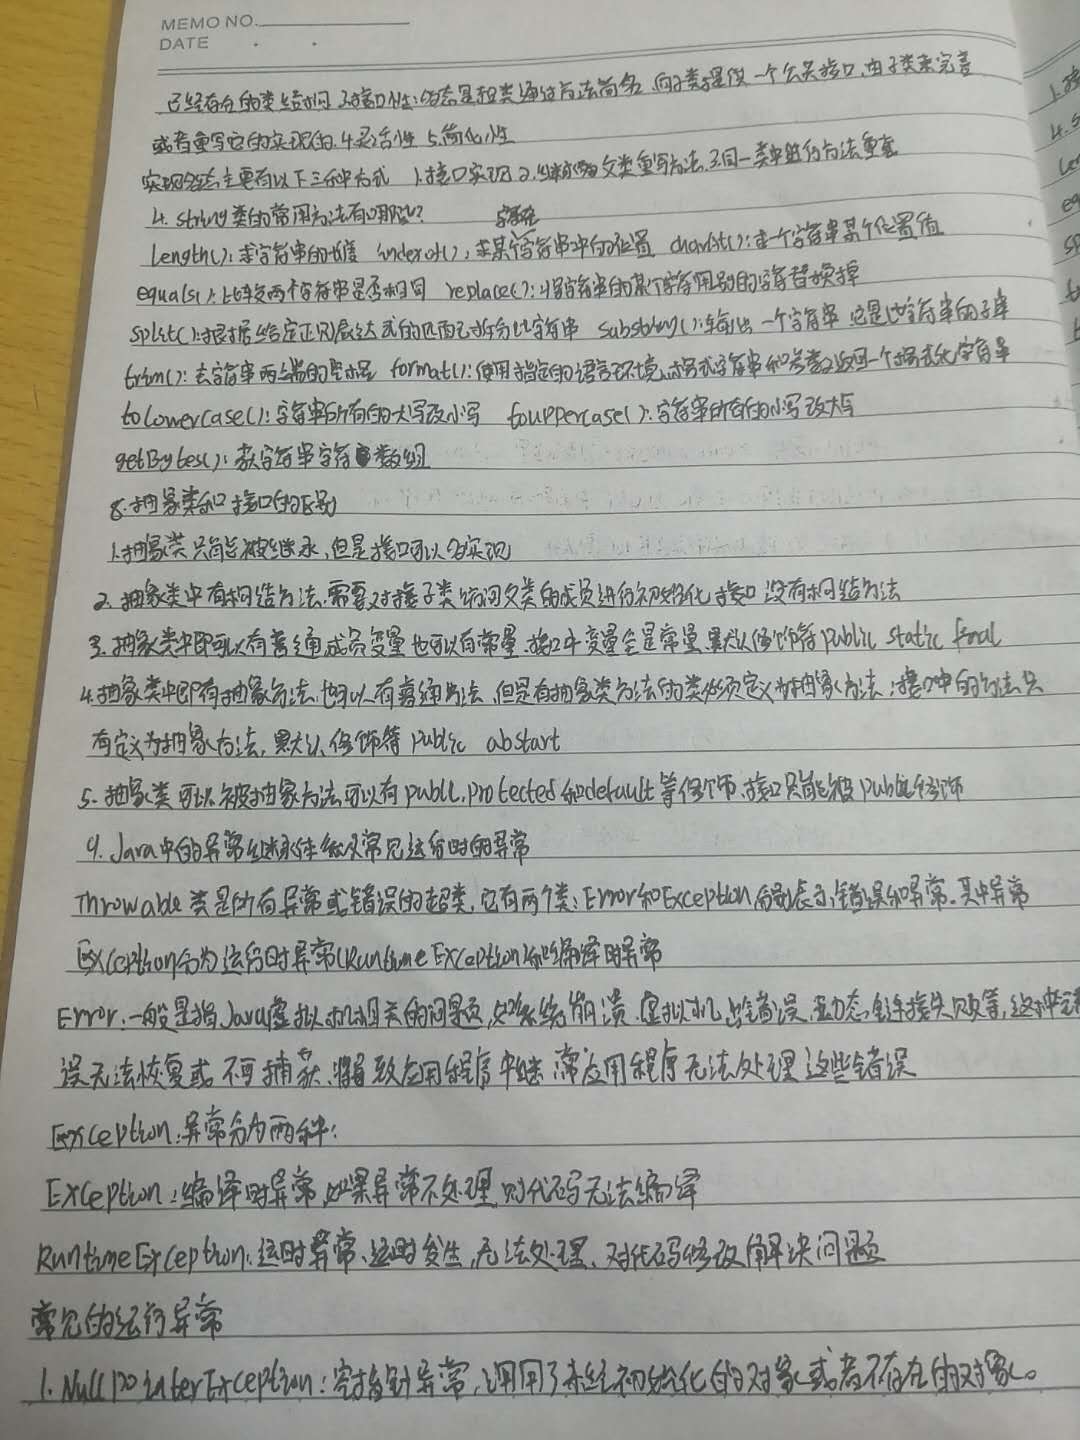 MEMO NO.
DATE
已经存在的类结构 3.接口性:多态是超类通过方法简名,向子类提供一个公共接口,由子类来完善
或者重写它的实现的. 4.灵活性 5.简化性
实现多态主要有以下三种方式 1.接口实现 2.继承父类重写方法,3.同一类中进行方法重载
4. string类的常用方法有哪些?
Length(): 求字符串的长度 indexof(); 求某个字符串中的位置 charAt(): 求一个字符串某个位置值
equals(): 比较两个字符串是否相同 replace(): 将字符串的某个字符用别的字符替换掉
split():根据给定正则表达式的匹配拆分此字符串 substring():输出一个字符串它是此字符串的子串
trim(): 去字符串两端的空格 format(): 使用指定的语言环境,格式字符串和参数返回一个格式化字符串
toLowerCase(): 字符串所有的大写改小写 toUpperCase(): 字符串所有的小写改大写
getBytes(): 数字符串字符数组
8.抽象类和接口的区别
1.抽象类只能被继承,但是接口可以多实现
2. 抽象类中有构造方法.需要对接子类访问父类的成员进行初始化,接口没有构造方法
3. 抽象类中即可以有普通成员变量也可以有常量.接口中变量全是常量,默认修饰符public static final
4.抽象类中即有抽象方法,也可以有普通方法,但是有抽象类方法的类必须定义为抽象方法;接口中的方法只
有定义为抽象方法, 默认修饰符public abstart
5. 抽象类可以被抽象方法可以有publc,protected和default等修饰,接口只能被public修饰
9. Java中的异常继承体系及常见运行时的异常
Throwable类是所有异常或错误的超类,它有两个类:Error和Exception分别表示错误和异常.其中异常
Exception分为运行时异常(RuntimeException)和编译时异常
Error: 一般是指Java虚拟机相关的问题,如系统崩溃.虚拟机出错误,动态链接失败等,这种错
误无法恢复或不可捕获.将导致应用程序中继,常应用程序无法处理这些错误
Exception:异常分为两种:
Exception:编译时异常,如果异常不处理,则代码无法编译
RuntimeException:运时异常.运时发生,无法处理.对代码修改解决问题
常见的运行异常
1. NullPointerException:空指针异常,调用了未经初始化的对象或者不存在的对象。